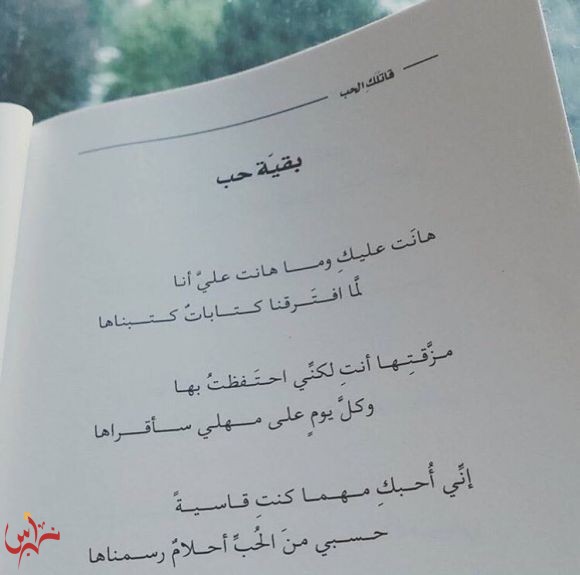 قاتلكِ الحب
بقيَة حب
هانَت عليكِ ومـــا هانت عليَّ أنا
لمَّا افتَــرقنا كتــابـاتٌ كتــبناها
مـزَّقتِــهـا أنتِ لكنِّي احتَـفظتُ بهـا
وكلَّ يومٍ على مــهلي ســأقــراها
إنِّي أُحـبكِ مـهـمـا كنتِ قـاسـيـةً
حــسبي منَ الحُبِّ أحلامٌ رسـمناها